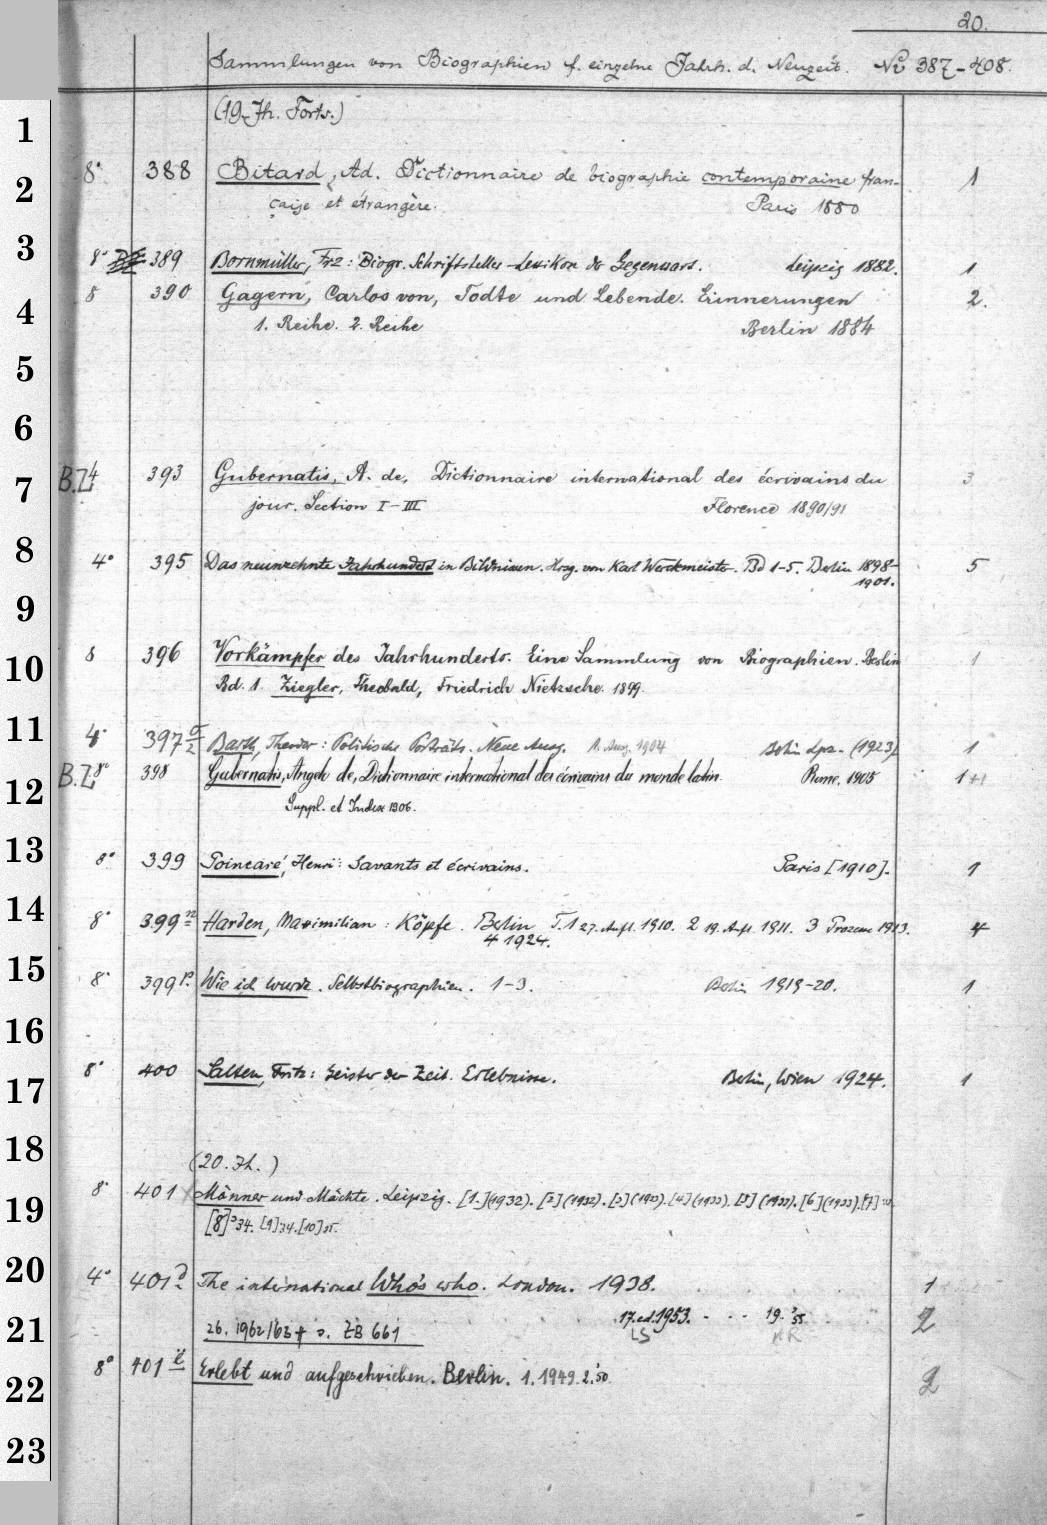 20.
Sammlungen von Biographien f. einzelne Jahrh. d. Neuzeit. No 387-408.
1 (19. Jh. Forts.)
2 8° 388 Bitard, Ad. Dictionnaire de biographie contemporaine fran- 1
çaise et étrangère. Paris 1880
3 8° 389 Bornmüller, Frz: Biogr. Schriftsteller-Lexikon der Gegenwart. Leipzig 1882. 1
4 8 390 Gagern, Carlos von, Todte und Lebende. Erinnerungen 2.
1. Reihe. 2. Reihe Berlin 1884
5
6
7 B.Z. 4 393 Gubernatis, A. de, Dictionnaire international des écrivains du 3
jour. Section I-III Florence 1890/91
8 4° 395 Das neunzehnte Jahrhundert in Bildnissen. Hrsg. von Karl Werckmeister. Bd 1-5. Berlin 1898- 5
1901.
9
10 8 396 Vorkämpfer des Jahrhunderts. Eine Sammlung von Biographien. Berlin 1
Bd. 1. Ziegler, Theobald, Friedrich Nietzsche. 1899.
11 397 Barth, Theodor: Politische Porträts. Neue Ausg. 1. Ausg. 1904 Berlin Lpz. (1923) 1
12 B.Z. 8° 398 Gubernatis, Angelo de, Dictionnaire international des écrivains du monde latin. Rome. 1905 1+1
Suppl. et Index 1906.
13 8° 399 Poincaré, Henri: Savants et écrivains. Paris [1910]. 1
14 8° 399 n Harden, Maximilian: Köpfe. Berlin T. 1 27. Aufl. 1910. 2 19. Aufl. 1911. 3 Prozesse 1913. 4
4 1924.
15 8° 399 p Wie ich wurde. Selbstbiographien. 1-3. Berlin 1919-20. 1
16
17 8° 400 Salten, Felix: Geister der Zeit. Erlebnisse. Berlin, Wien 1924. 1
18 (20. Jh.)
19 8° 401 Männer und Mächte. Leipzig. [1.](1932). [2](1932). [3](1933). [4](1933). [5](1933). [6](1933). [7]
[8] 34. [9] 34. [10] 35.
20 4° 401 The international Who's who. London. 1938. 1
21 17. ed. 1953. - - - 19. '55 2
LS
26. 1962/63 + s. ZB 661
22 8° 401 Erlebt und aufgeschrieben. Berlin. 1. 1949. 2. '50 2
23